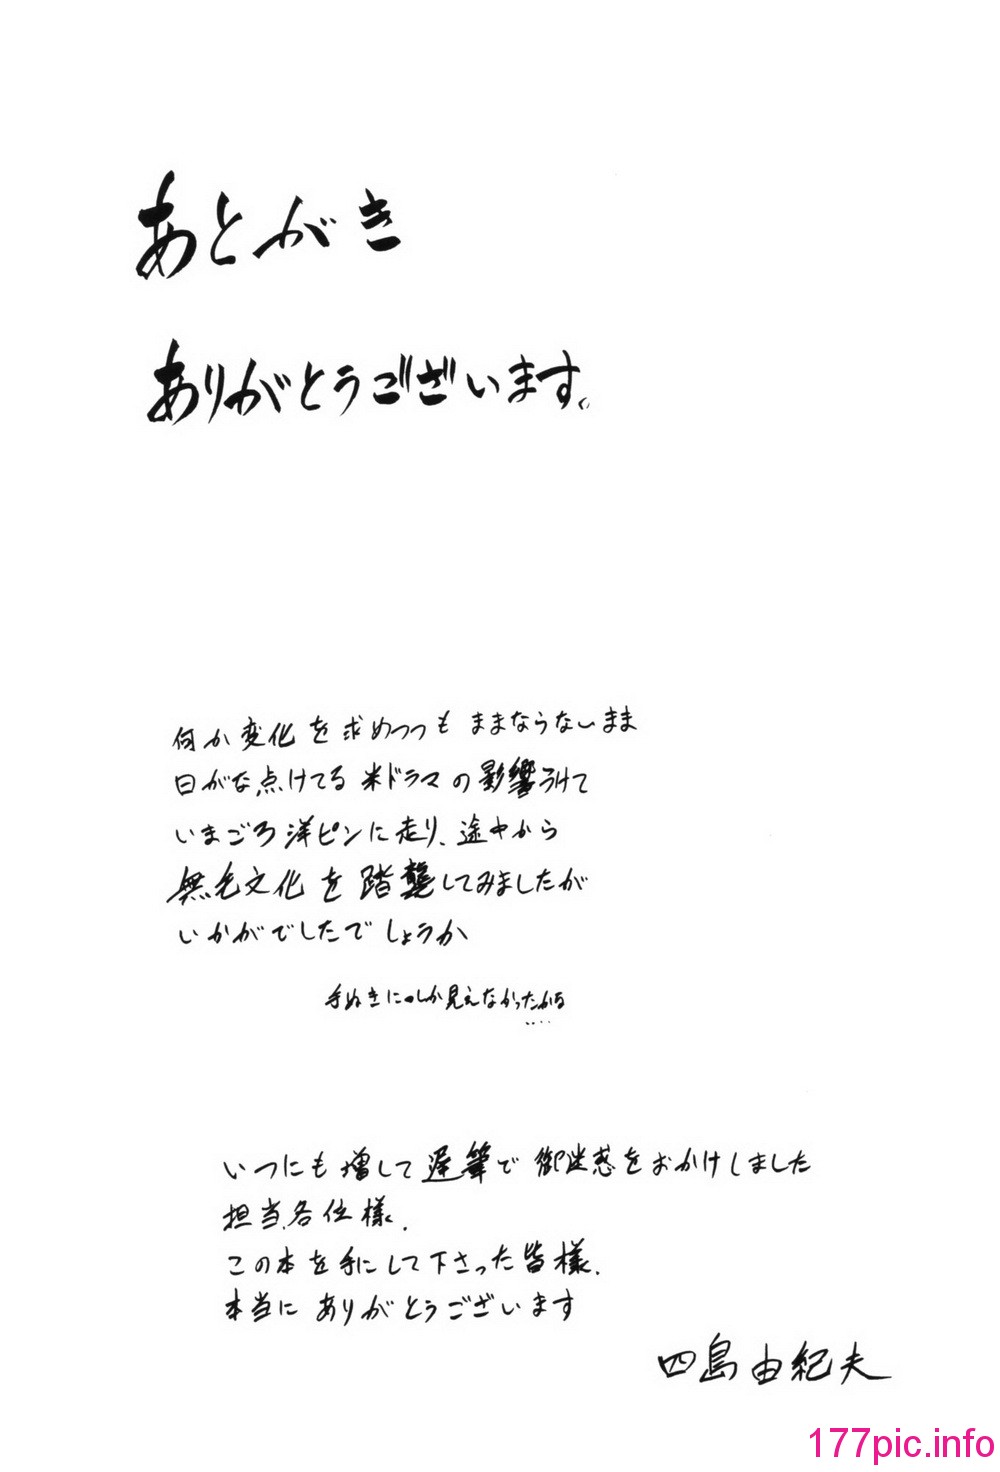 あとがき
ありがとうございます。
何か変化を求めつつもままならないまま
日がな点けてる米ドラマの影響うけて
いまごろ洋ピンに走り、途中から
無毛文化を踏襲してみましたが
いかがでしたでしょうか
手ぬきにしか見えなかったかな
....
いつにも増して遅筆で御迷惑をおかけしました
担当各位様、
この本を手にして下さった皆様、
本当にありがとうございます
四島由紀夫
177pic.info